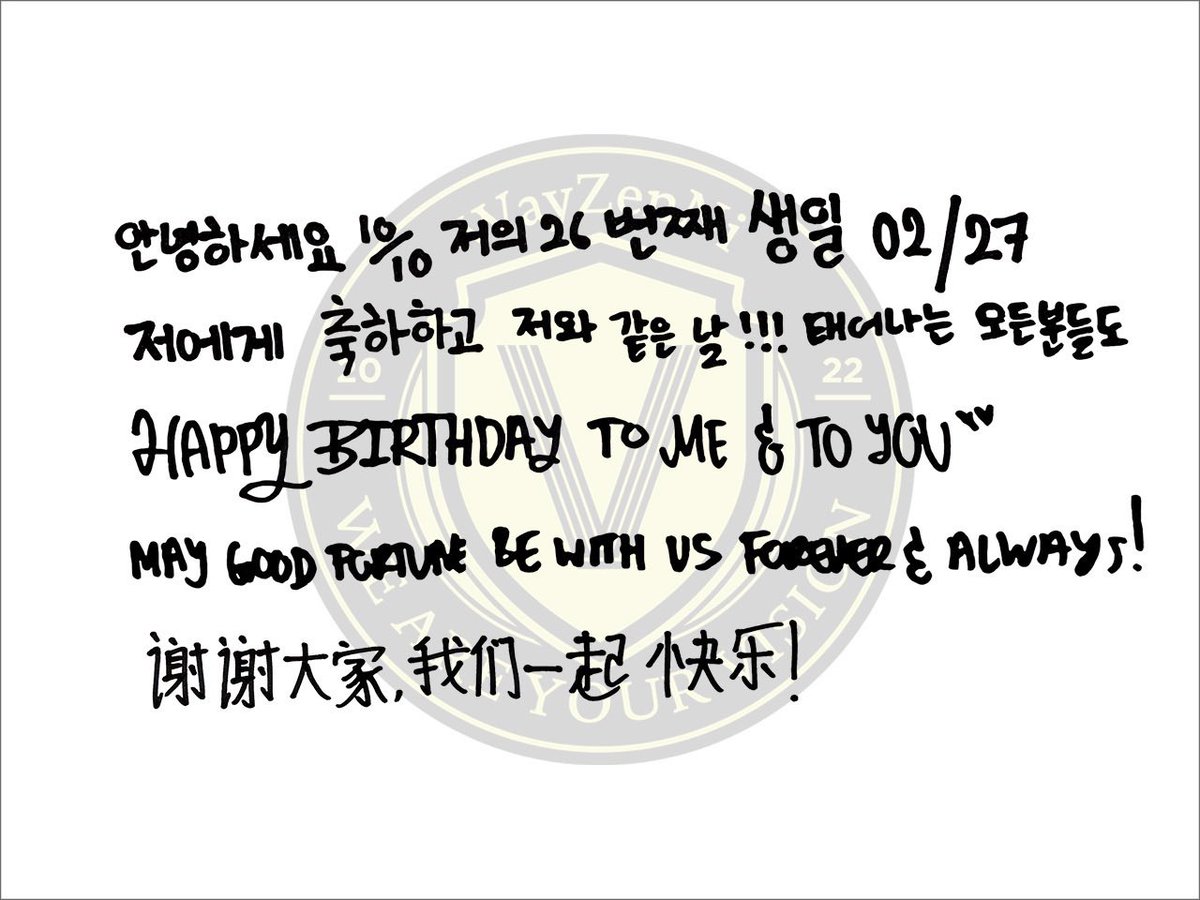 안녕하세요 10/10 저의 26 번째 생일 02/27
저에게 축하하고 저와 같은 날!!! 태어나는 모든분들도
HAPPY BIRTHDAY TO ME & TO YOU
MAY GOOD FORTUNE BE WITH US FOREVER & ALWAYS!
谢谢大家,我们一起快乐!
WayZenNi
20 22
WE ARE YOUR VISION